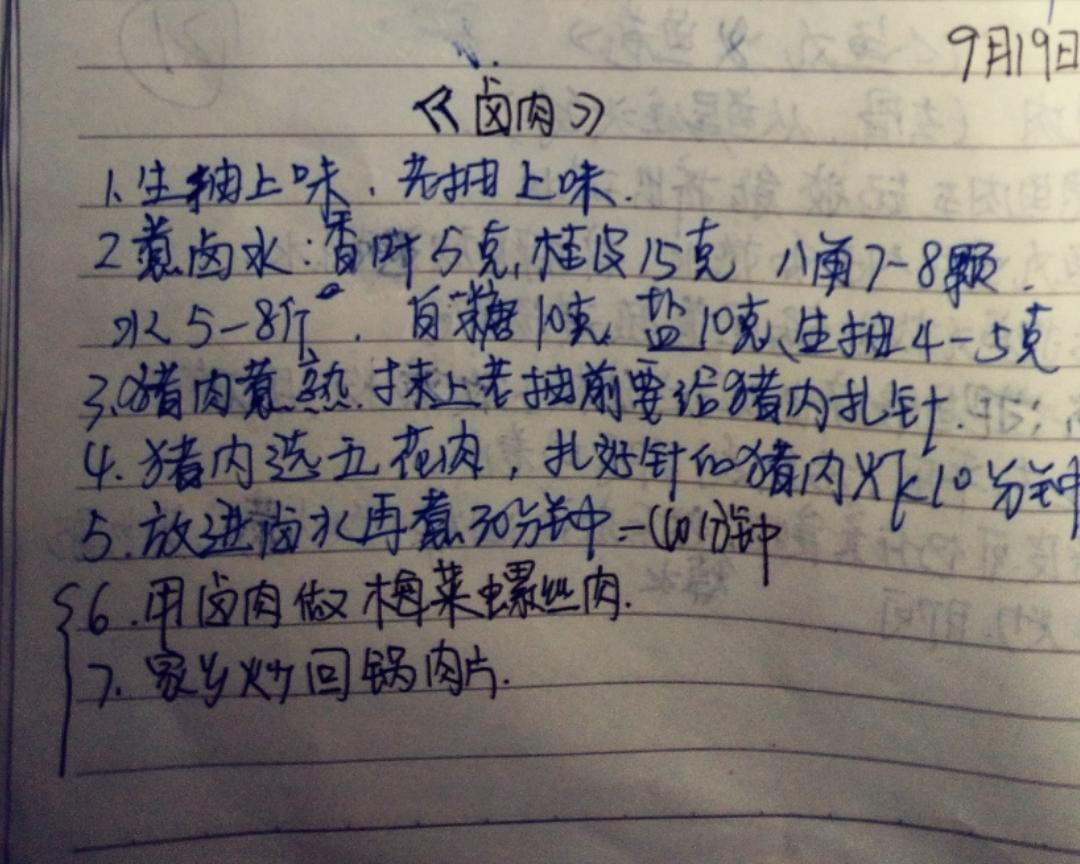 9月19日
《卤肉》
1、生抽上味、老抽上味.
2煮卤水:香叶5克,桂皮15克 八角7-8颗.
水5-8斤. 白糖10克,盐10克、生抽4-5克
3、猪肉煮熟.抹上老抽前要给猪肉扎针.
4.猪肉选五花肉,扎好针的猪肉 10分钟
5.放进卤水再煮30分钟-
6.用卤肉做梅菜螺丝肉.
7.家乡炒回锅肉片.